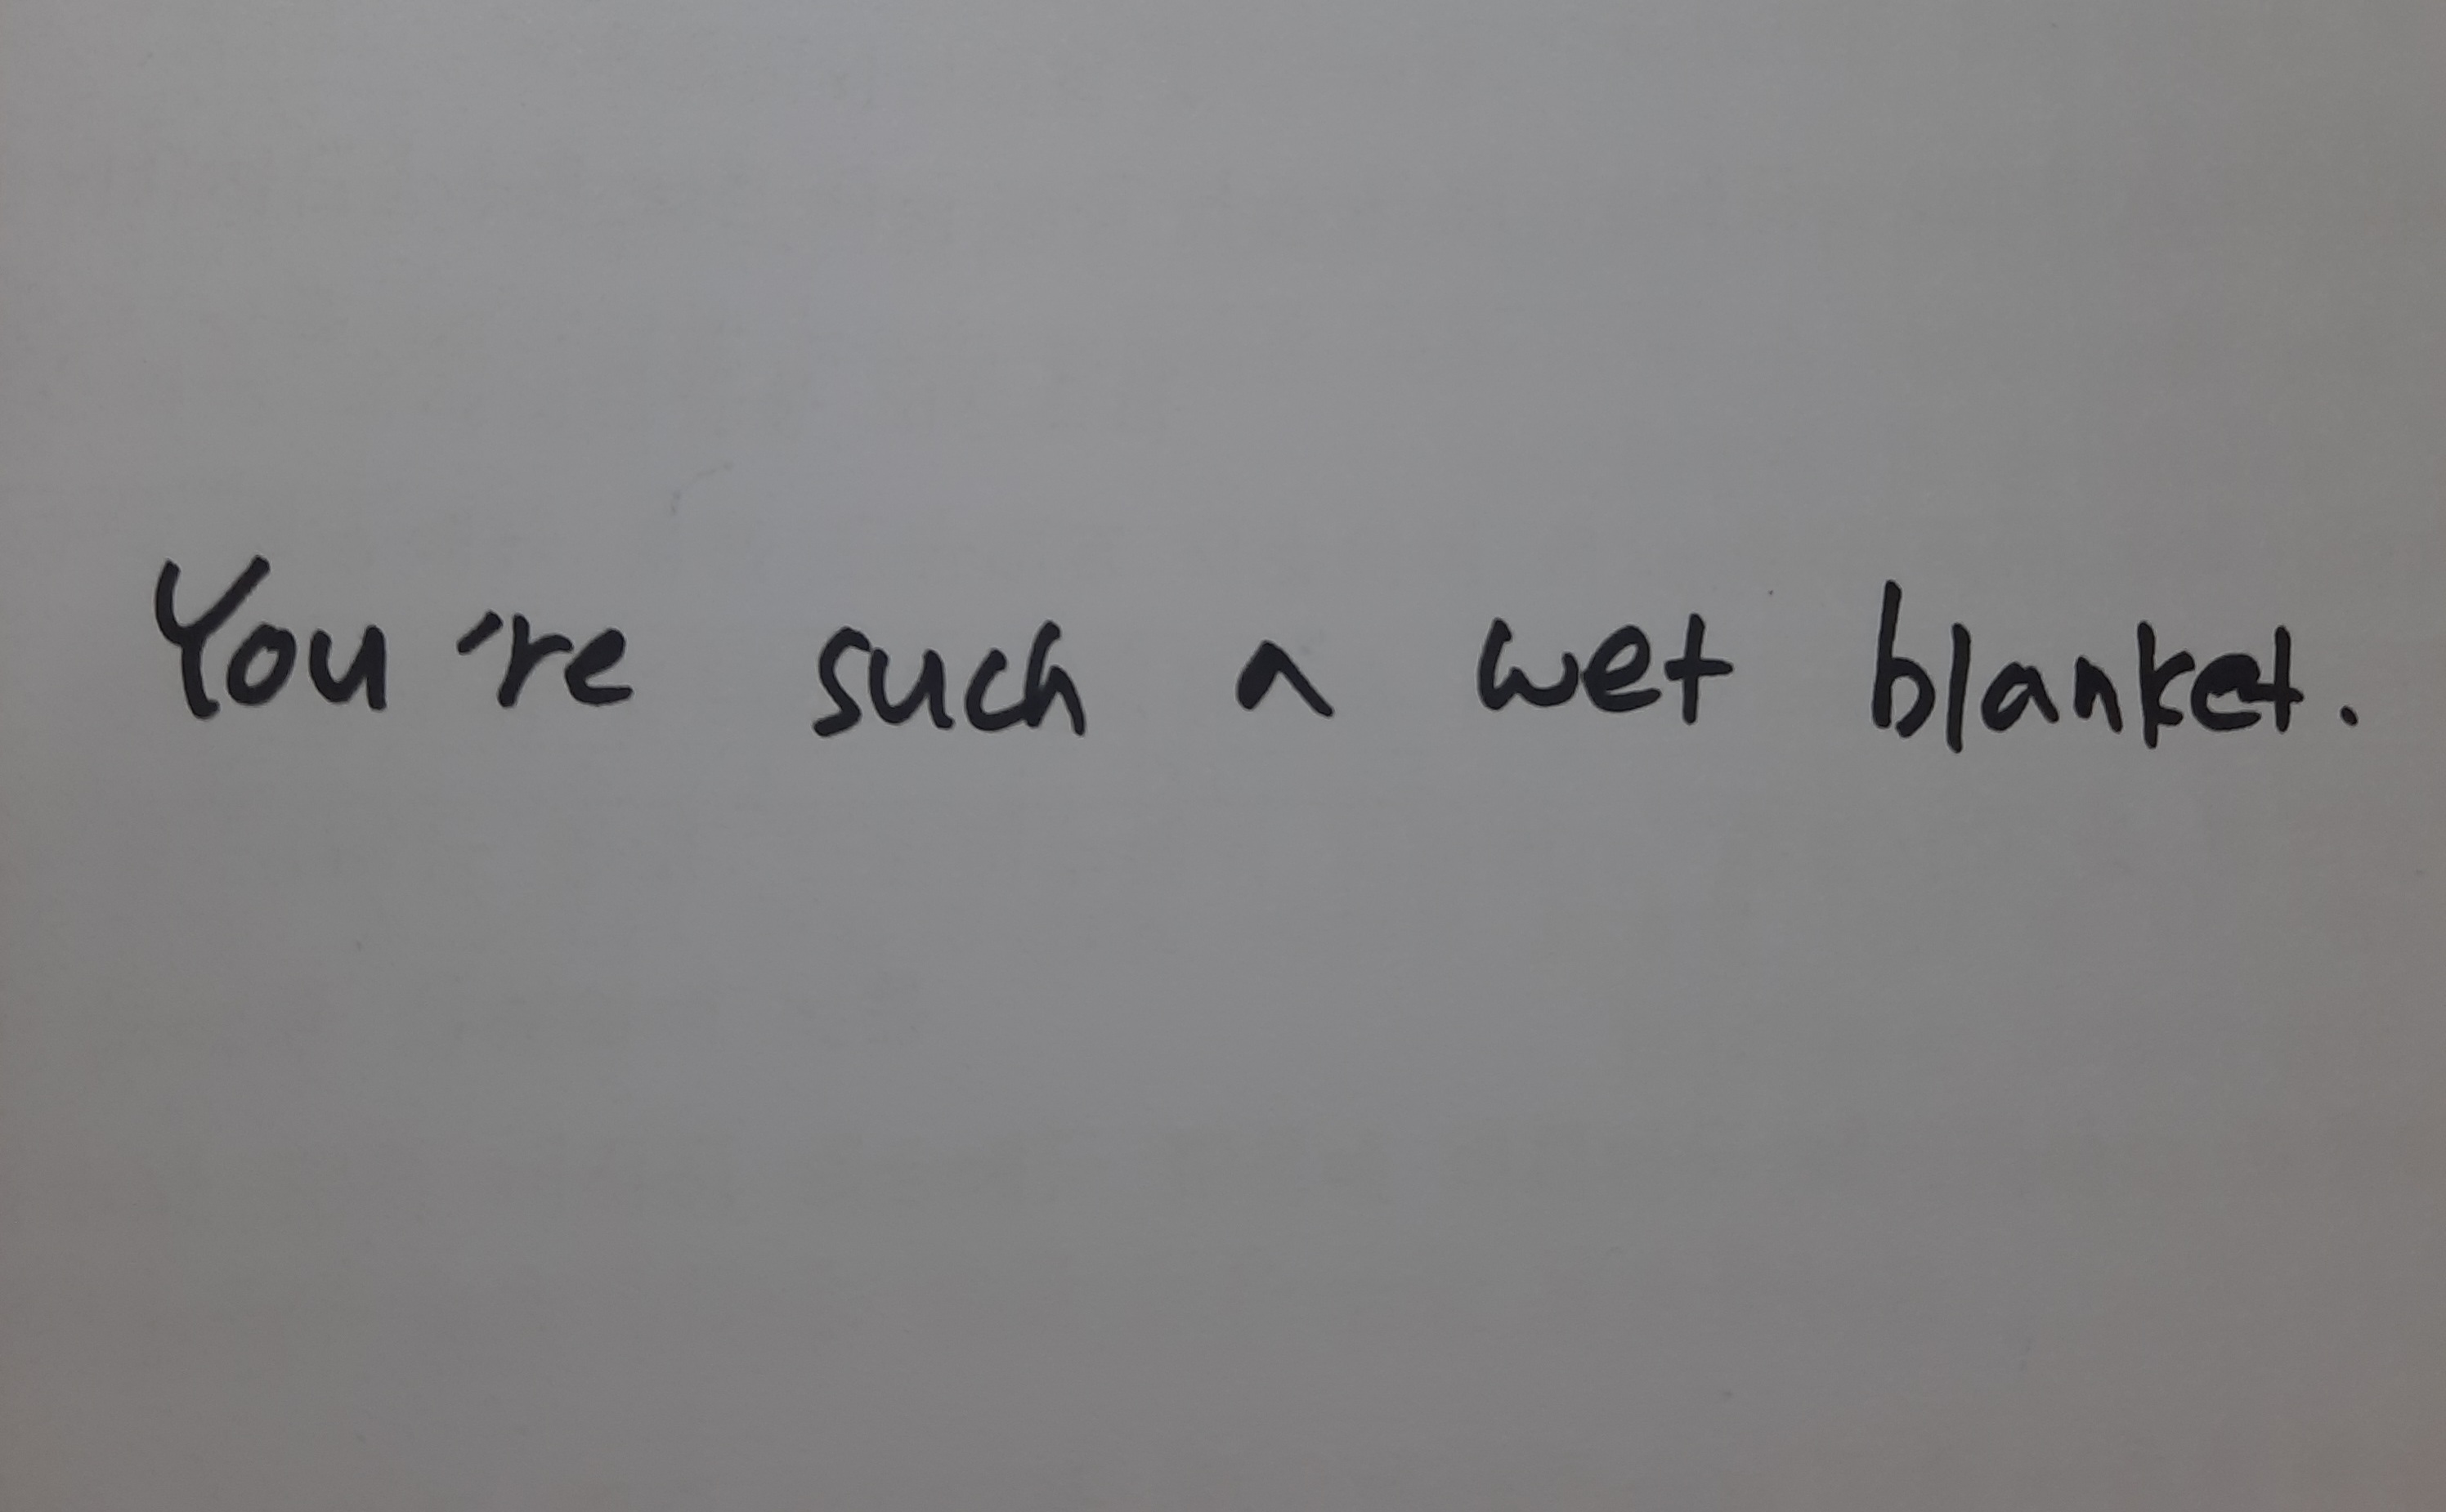 You're such a wet blanket.